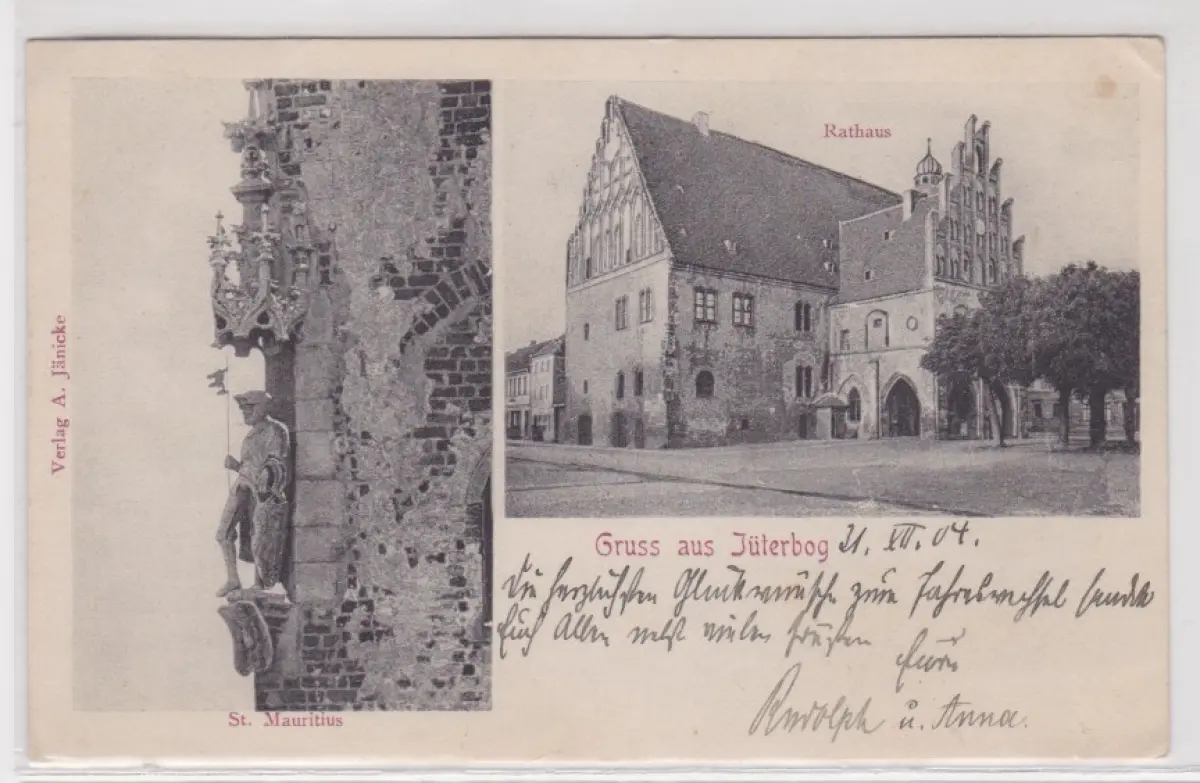 Rathaus
Verlag A. Jänicke
St. Mauritius
Gruss aus Jüterbog 31. XII. 04.
Die herzlichsten Glückwünsche zum Jahreswechsel sendet
Euch Allen nebst vielen Grüßen
Eure
Rudolph u. Anna.